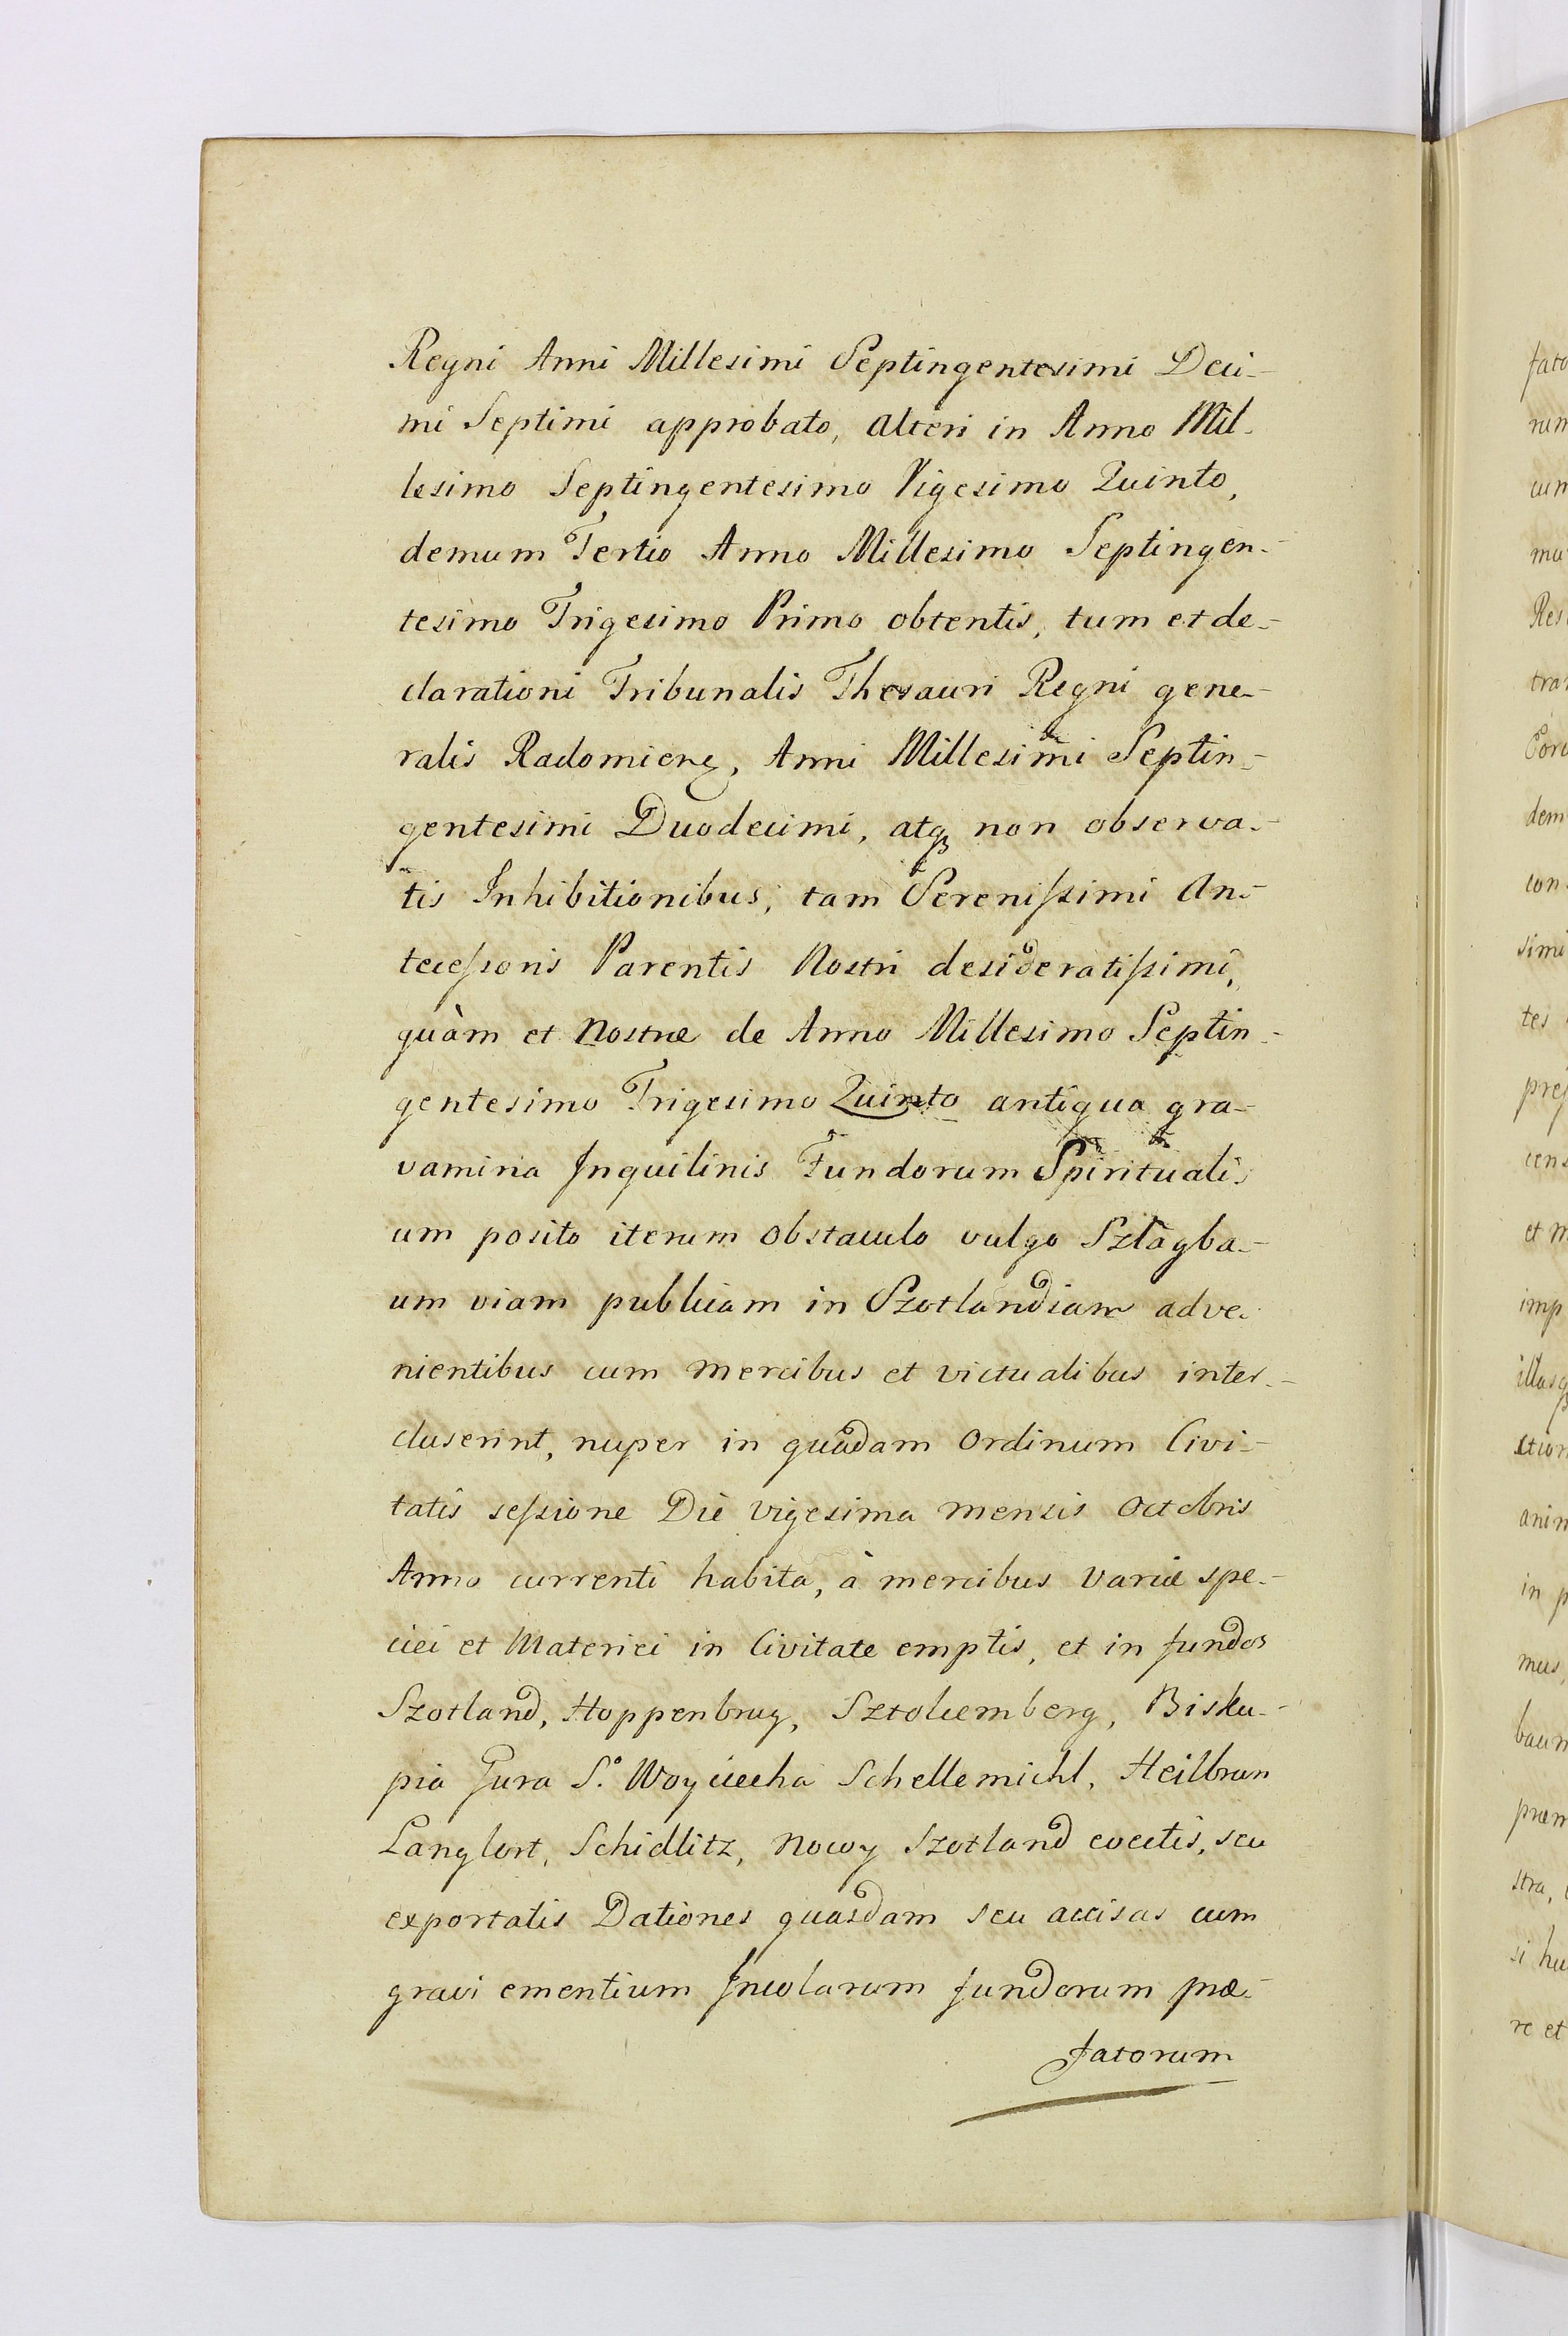 Regni Anni Millesimi Septingentesimi Deci-
mi Septimi approbato, alteri in Anno Mil-
lesimo Septingentesimo Vigesimo Quinto,
demum Tertio Anno Millesimo Septingen-
tesimo Trigesimo Primo obtentis, tum et de-
clarationi Tribunalis Thesauri Regni gene-
ralis Radomien̄, Anni Millesimi Septin-
gentesimi Duodecimi, atqȝ non observa-
tis Inhibitionibus, tam Sereniſsimi An-
teceſsoris Parentis Nostri desideratiſsimi,
quàm et Nostræ de Anno Millesimo Septin-
gentesimo Trigesimo Quinto antiqua gra-
vamina Inquilinis Fundorum Spirituali-
um posito iterum obstaculo vulgo Szlagba-
um viam publicam in Szotlandiam adve-
nientibus cum mercibus et victualibus inter-
cluserint, nuper in quadam Ordinum Civi-
tatis seſsione Die vigesima mensis Octobris
Anno currenti habita, à mercibus variæ spe-
ciei et Materiei in Civitate emptis, et in fundos
Szotland, Hoppenbrug, Sztolcemberg, Bisku-
pia Gura S.º Woyciecha Schellemichl, Heilbrun
Langfort, Schidlitz, Nowy Szotland evectis, seu
exportatis Dationes quasdam seu accisas cum
gravi ementium Incolarum fundorum præ-
fatorum
fato
rum
cum
Res
dem
con-
simi
tes
et m
imp
in p
mus,
baum
stra,
si hu
re et